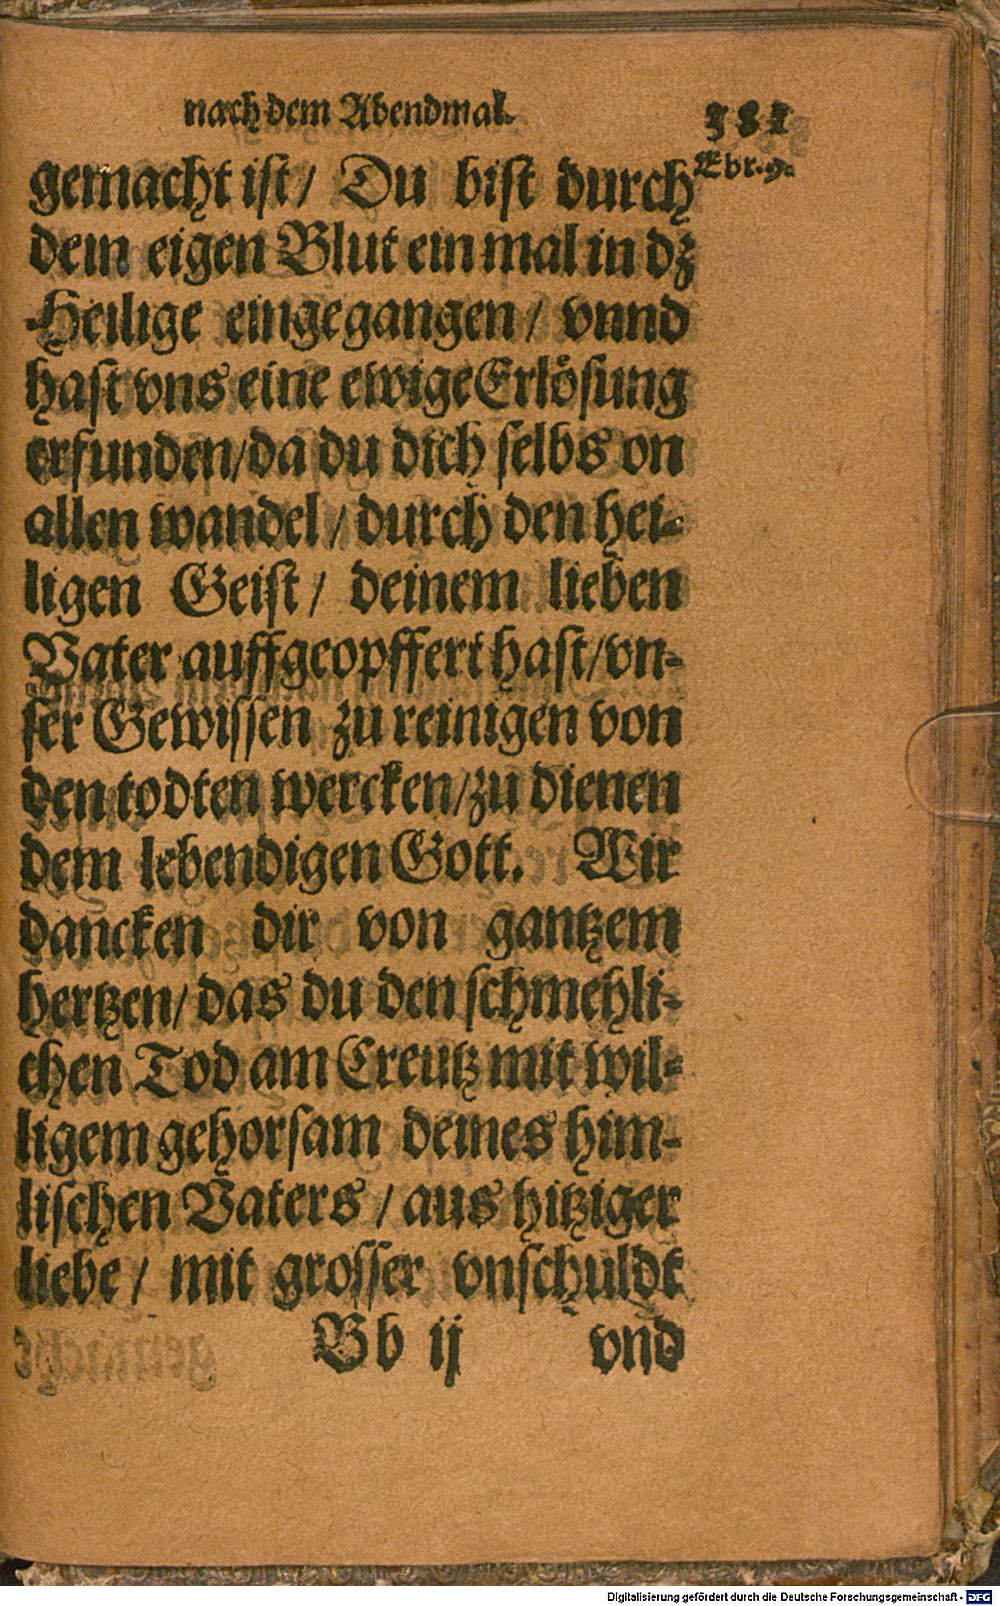 nach dem Abendmal.
381
Ebr. 9.
gemacht ist/ Du bist durch
dein eigen Blut ein mal in dz
Heilige eingegangen/ vnnd
hast vns eine ewige Erlösung
erfunden/da du dich selbs on
allen wandel/durch den hei-
ligen Geist/ deinem lieben
Vater auffgeopffert hast/vn-
ser Gewissen zu reinigen von
den todten wercken/zu dienen
dem lebendigen Gott. Wir
dancken dir von gantzem
hertzen/das du den schmehli-
chen Tod am Creutz mit wil-
ligem gehorsam deines him-
lischen Vaters/aus hitziger
liebe/ mit grosser vnschuldt
Bb ij
vnd
Digitalisierung gefördert durch die Deutsche Forschungsgemeinschaft - DFG